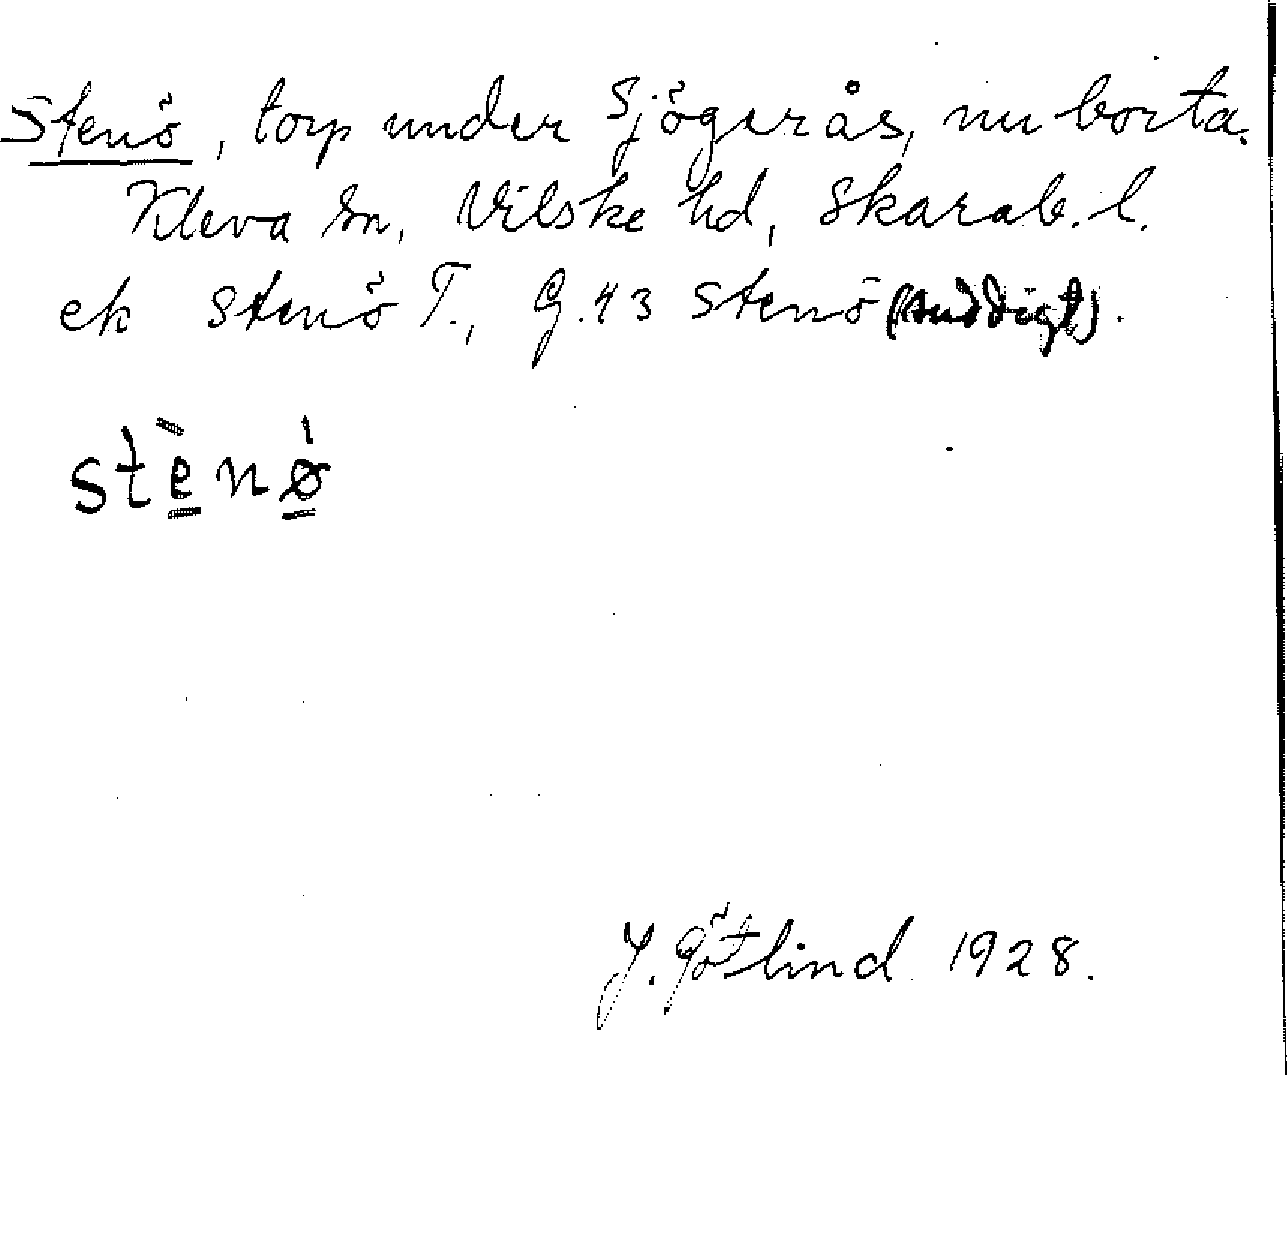 Stenö, torp under Sjögerås, nu borta.
Kleva sn, Vilske hd, Skarab. l.
ek Stenö T., G. 43 Stenö (suddigt).
stènø̀
J. Götlind 1928.